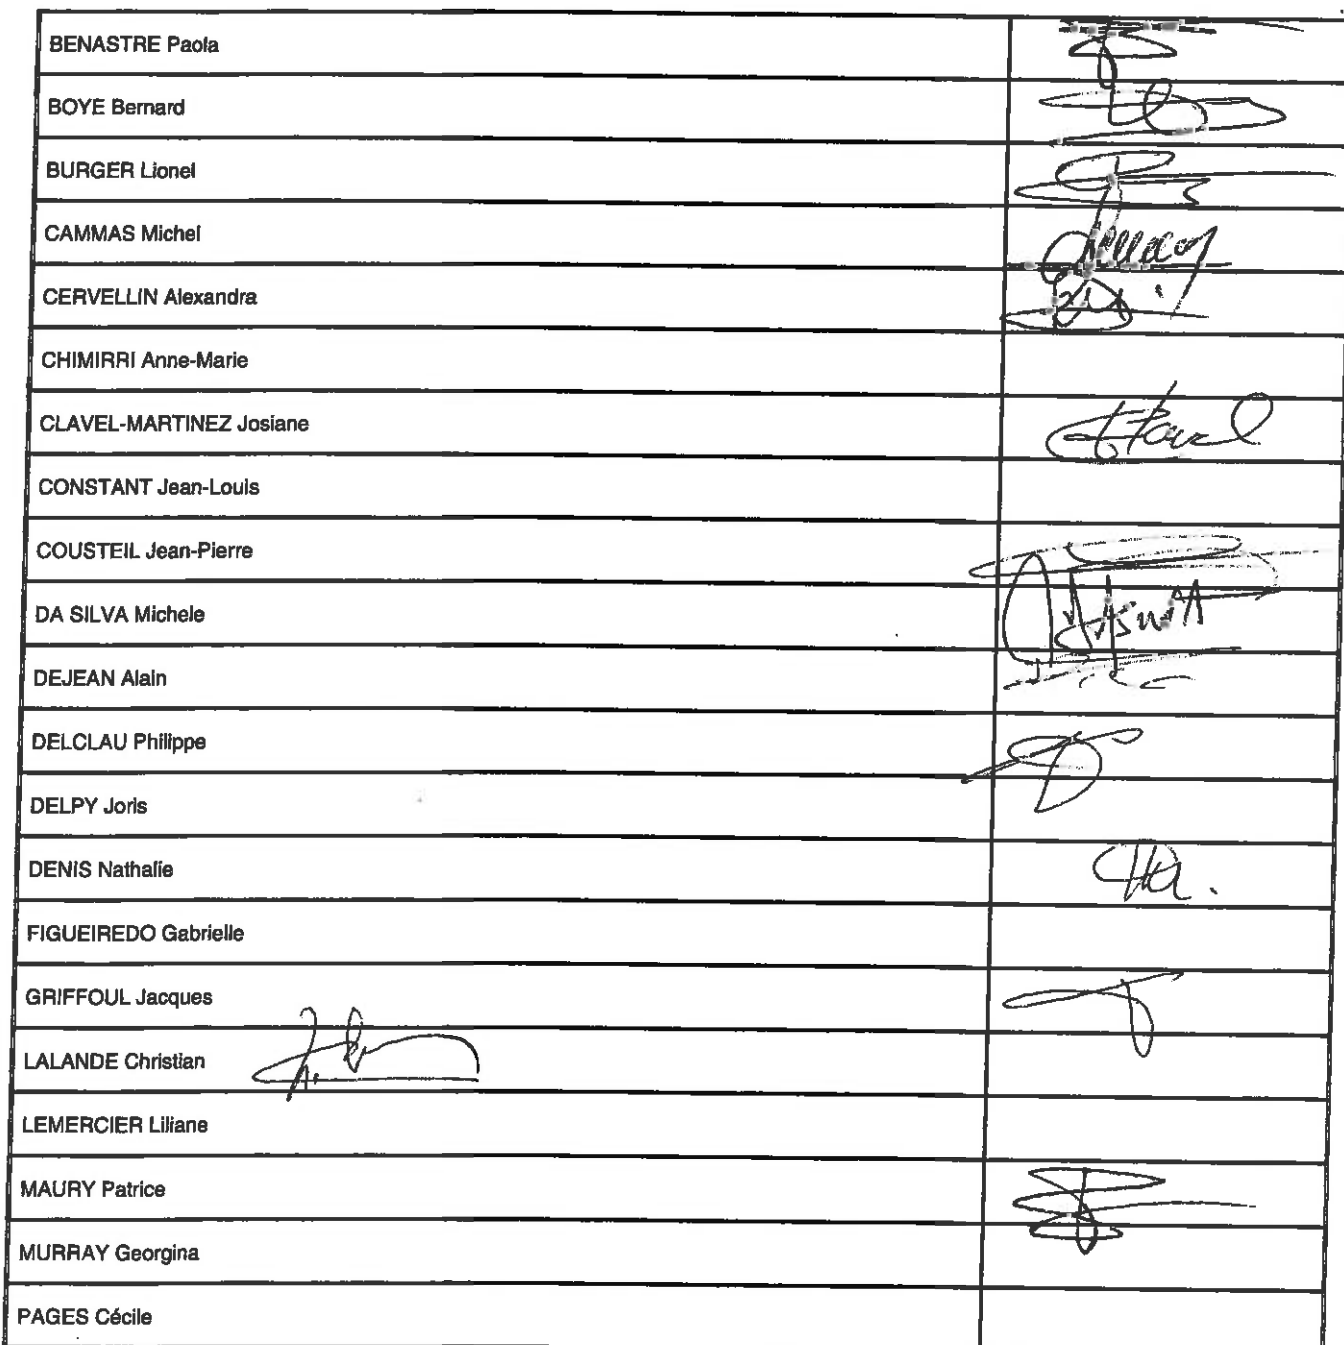 BENASTRE Paola
BOYE Bernard
BURGER Lionel
CAMMAS Michel
CERVELLIN Alexandra
CHIMIRRI Anne-Marie
CLAVEL-MARTINEZ Josiane
CONSTANT Jean-Louis
COUSTEIL Jean-Pierre
DA SILVA Michele
DEJEAN Alain
DELCLAU Philippe
DELPY Joris
DENIS Nathalie
FIGUEIREDO Gabrielle
GRIFFOUL Jacques
LALANDE Christian
LEMERCIER Liliane
MAURY Patrice
MURRAY Georgina
PAGES Cécile